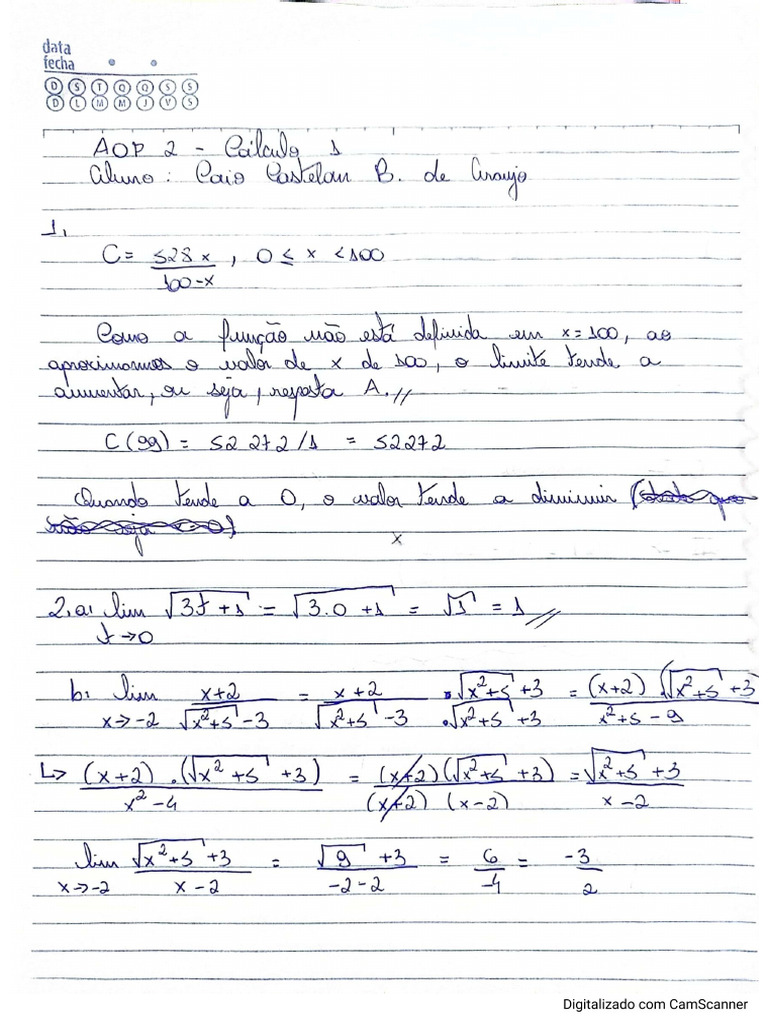 data
fecha
D S T Q Q S S
D L M M J V S
AOP 2 - Cálculo 1
Aluno: Caio Castelan B. de Araujo
1.
C = 528x / 100-x , 0 ≤ x < 100
Como a função não está definida em x=100, ao
aproximarmos o valor de x de 100, o limite tende a
aumentar, ou seja, resposta A.//
C(99) = 52 272/1 = 52272
Quando tende a 0, o valor tende a diminuir
x
2.a: lim √3t+1 = √3.0+1 = √1 = 1 //
t→0
b: lim x+2 / √x²+5 -3 = x+2 / √x²+5 -3 . √x²+5 +3 / . √x²+5 +3 = (x+2) (√x²+5 +3) / x²+5-9
x→-2
↳ (x+2) . (√x²+5 +3) / x²-4 = (x+2)(√x²+5 +3) / (x+2) (x-2) = √x²+5 +3 / x-2
lim √x²+5 +3 / x-2 = √9 +3 / -2-2 = 6 / -4 = -3 / 2
x→-2
Digitalizado com CamScanner